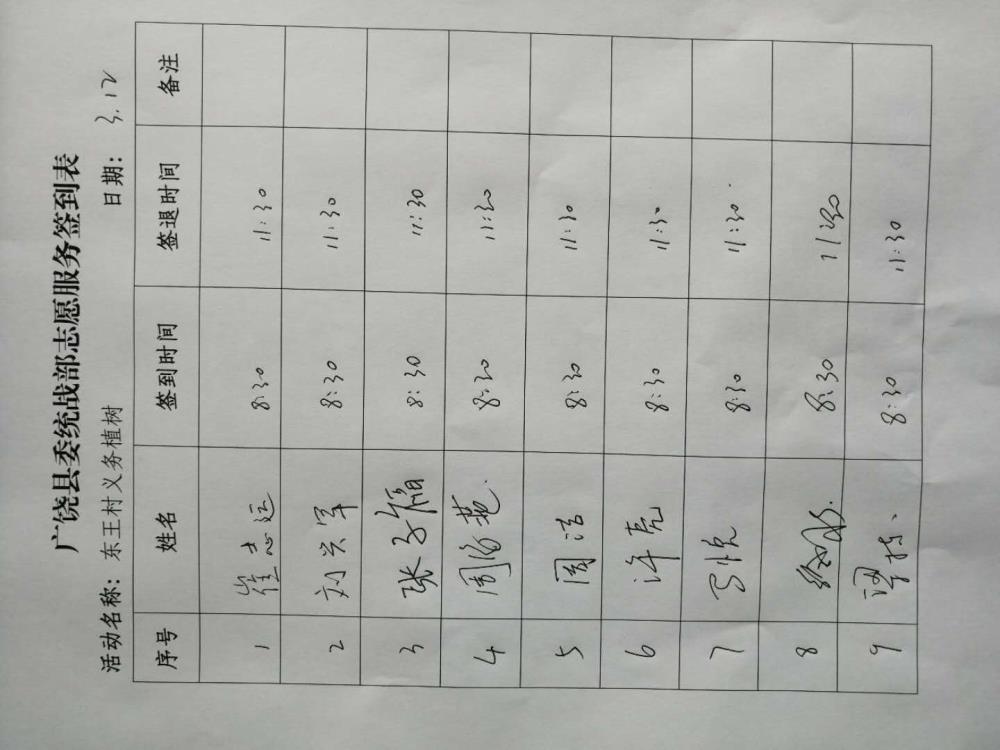 广饶县委统战部志愿服务签到表
活动名称：东王村义务植树 日期：3.12
序号 姓名 签到时间 签退时间 备注
1 崔志远 8:30 11:30
2 刘兴军 8:30 11:30
3 张子 8:30 11:30
4 周 8:30 11:30
5 周洁 8:30 11:30
6 许亮 8:30 11:30
7 马悦 8:30 11:30
8 8:30 11:30
9 8:30 11:30